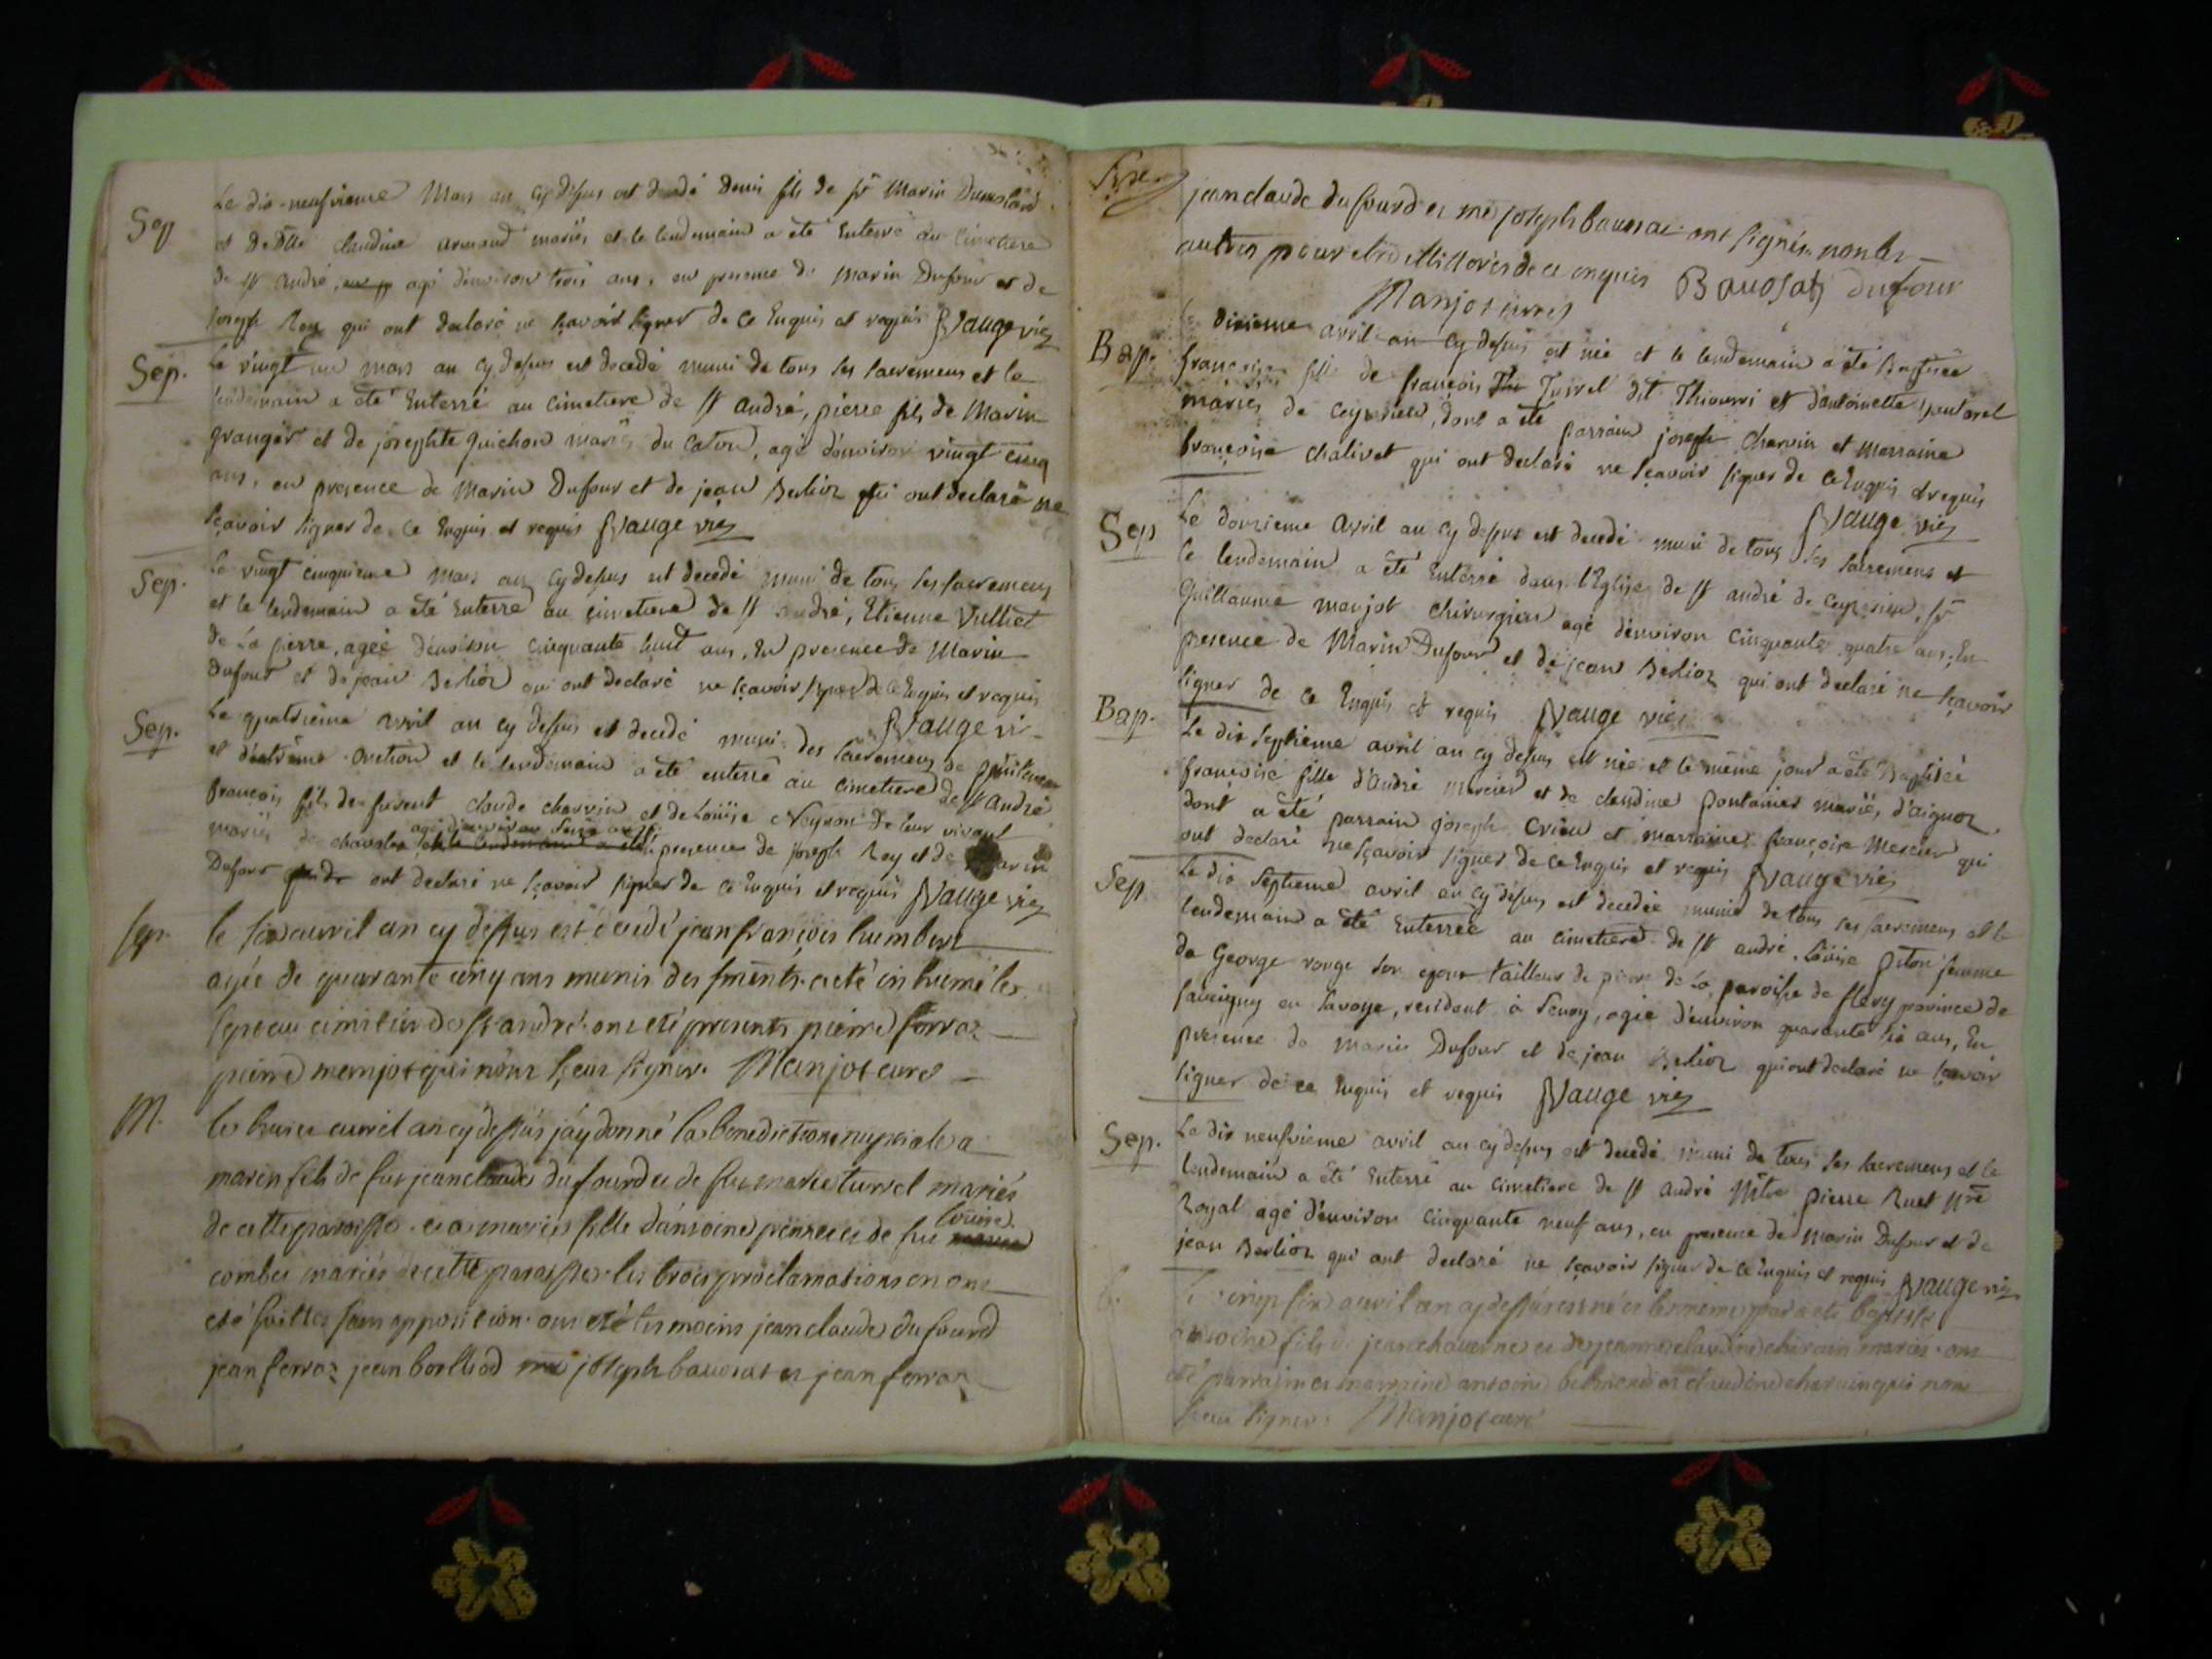 Sep
Le dix-neufvieme Mars an cy dessus est decedé denis fils de sr Marin Dumolard
et de Dlle claudine armand mariés et le lendemain a été Enterré au cimetiere
de st andré, agé d'environ trois ans, en presence de Marin Dufour et de
joseph Rey qui ont declaré ne sçavoir signer de ce Enquis et requis Vauge vic
Sep.
Le vingt un mars an cy dessus est decedé muni de tous ses sacremens et le
lendemain a été Enterré au cimetiere de st andré, pierre fils de Marin
granger et de josephte guichon mariés du caton, agé d'environ vingt cinq
ans, en presence de Marin Dufour et de jean Berlioz qui ont declaré ne
sçavoir signer de ce Enquis et requis Vauge vic
Sep.
Le vingt cinquieme mars an cy dessus est decedé muni de tous ses sacremens
et le lendemain a été Enterré au cimetiere de st andré, Etienne Vulliet
de La pierre, agée d'environ cinquante huit ans, En presence de Marin
Dufour et de jean Berlioz qui ont declaré ne sçavoir signer de ce Enquis et requis
Vauge vi
Sep.
Le quatrieme avril an cy dessus est decedé muni des sacremens de penitence
et d'extrême onction et le lendemain a été enterré au cimetiere de st andré
françois fils de furent claude charvin et de Loüise Neyron de leur vivant
mariés de agé d'environ presence de joseph Rey et de Marin
Dufour ont declaré ne sçavoir signer de ce Enquis et requis Vauge vic
sep.
le six avril an cy dessus est décédé jean françois humbert
agée de quarante cinq ans munis des sments a été inhumé le
sept au cimitier de st andré ont été presents pierre ferraz
pierre manjot qui n'ont sçeus signer. Manjot curé
M.
le huit avril an cy dessus j'ay donné la benediction nuptiale a
marin fils de fus jean claude du fourd et de fue marie turrel mariés
de cette paroisse et a marie fille d'antoine pierre et de fue louise
combet mariés de cette paroisse les trois proclamations en ont
été faittes sans opposition ont été temoins jean claude du fourd
jean ferraz jean borlliod me joseph bauosat et jean ferraz
jean claude du fourd et me joseph bauosat ont signés non les
autres pour etre illitorés de ce enquis Bauosat dufour
Manjot curé
Bap.
Le dixieme avril an cy dessus est née et le lendemain a été Baptisée
françoise fille de françois Turrel dit Thiourri et d'antoinette
mariés de Ceyzerieu, dont a été parrain joseph charvin et marraine
françoise chalivet qui ont declaré ne sçavoir signer de ce Enquis et requis
Vauge vic
Sep
Le douzieme avril an cy dessus est decedé muni de tous ses sacremens et
le lendemain a été Enterré dans l'Eglise de st andré de Ceyzerieu, sr
Guillaume manjot chirurgien agé d'environ cinquante quatre ans, En
presence de Marin Dufour et de jean Berlioz qui ont declaré ne sçavoir
signer de ce Enquis et requis Vauge vic
Bap.
Le dix septieme avril an cy dessus est née et le même jour a été Baptisée
françoise fille d'andré mercier et de claudine pontanier mariés, d'aignoz,
dont a été parrain joseph Crieu et marraine françoise Mercier qui
ont declaré ne sçavoir signer de ce Enquis et requis Vauge vic
Sep
Le dix septieme avril an cy dessus est decedée munie de tous ses sacremens et le
lendemain a été Enterrée au cimetiere de st andré, Loüise piton femme
de George rouge son epoux tailleur de pierre de La paroisse de flery province de
faucigny en savoye, resident à Senoy, agée d'environ quarante six ans, En
presence de Marin Dufour et de jean Berlioz qui ont declaré ne sçavoir
signer de ce Enquis et requis Vauge vic
Sep.
Le dix neufvieme avril an cy dessus est decedé muni de tous ses sacremens et le
lendemain a été Enterré au cimetiere de st andré Mtre pierre Ruet Nre
Royal agé d'environ cinquante neuf ans, en presence de Marin Dufour et de
jean Berlioz qui ont declaré ne sçavoir signer de ce Enquis et requis Vauge vic
b.
le vingt six avril an cy dessus est né et le meme jour a été baptisé
antoine fils de jean chauenne et de jeanne claudine chirain mariés ont
été parrain et marraine antoine et claudine charuin qui n'ont
sçeu signer. Manjot curé